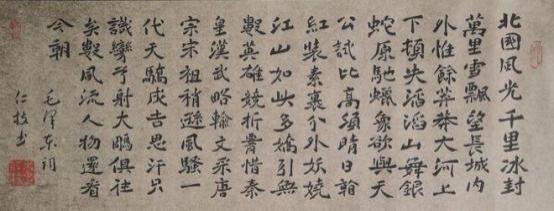 北國風光千里冰封
萬里雪飄望長城內
外惟餘莽莽大河上
下頓失滔滔山舞銀
蛇原馳蠟象欲與天
公試比高須晴日看
紅裝素裹分外妖嬈
江山如此多嬌引無
數英雄競折腰惜秦
皇漢武略輸文采唐
宗宋祖稍遜風騷一
代天驕成吉思汗只
識彎弓射大鵰俱往
矣數風流人物還看
今朝
毛澤東詞
仁枝书